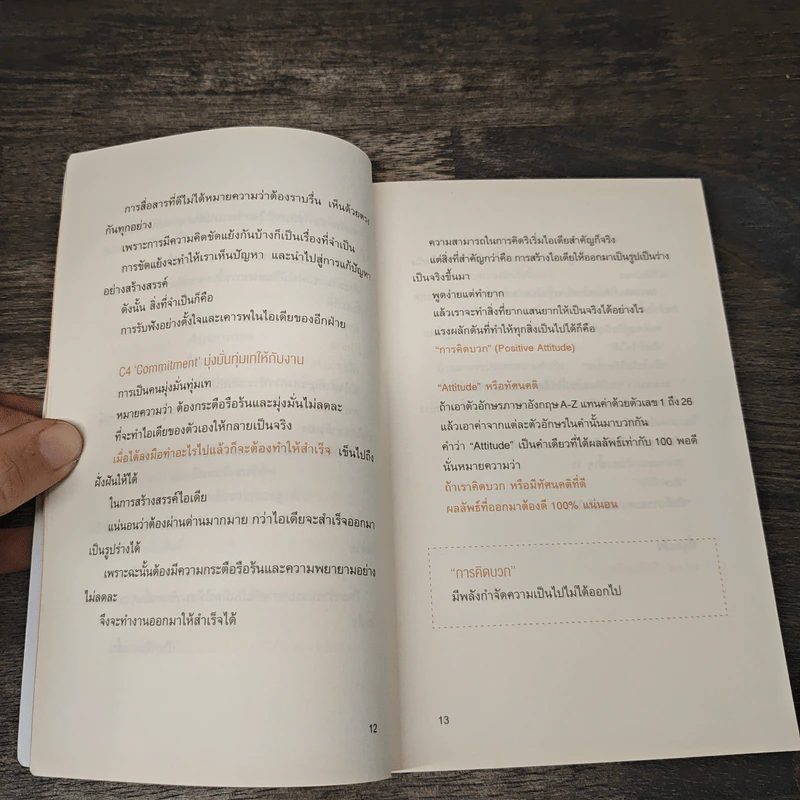 การสื่อสารที่ดีไม่ได้หมายความว่าต้องราบรื่น เห็นด้วยตรง
กันทุกอย่าง
เพราะการมีความคิดขัดแย้งกันบ้างก็เป็นเรื่องที่จำเป็น
การขัดแย้งจะทำให้เราเห็นปัญหา และนำไปสู่การแก้ปัญหา
อย่างสร้างสรรค์
ดังนั้น สิ่งที่จำเป็นก็คือ
การรับฟังอย่างตั้งใจและเคารพในไอเดียของอีกฝ่าย
C4 'Commitment' มุ่งมั่นทุ่มเทให้กับงาน
การเป็นคนมุ่งมั่นทุ่มเท
หมายความว่า ต้องกระตือรือร้นและมุ่งมั่นไม่ลดละ
ที่จะทำไอเดียของตัวเองให้กลายเป็นจริง
เมื่อได้ลงมือทำอะไรไปแล้วก็จะต้องทำให้สำเร็จ เข็นไปถึง
ฝั่งฝันให้ได้
ในการสร้างสรรค์ไอเดีย
แน่นอนว่าต้องผ่านด่านมากมาย กว่าไอเดียจะสำเร็จออกมา
เป็นรูปร่างได้
เพราะฉะนั้นต้องมีความกระตือรือร้นและความพยายามอย่าง
ไม่ลดละ
จึงจะทำงานออกมาให้สำเร็จได้
12
ความสามารถในการคิดริเริ่มไอเดียสำคัญก็จริง
แต่สิ่งที่สำคัญกว่าคือ การสร้างไอเดียให้ออกมาเป็นรูปเป็นร่าง
เป็นจริงขึ้นมา
พูดง่ายแต่ทำยาก
แล้วเราจะทำสิ่งที่ยากแสนยากให้เป็นจริงได้อย่างไร
แรงผลักดันที่ทำให้ทุกสิ่งเป็นไปได้ก็คือ
"การคิดบวก" (Positive Attitude)
"Attitude" หรือทัศนคติ
ถ้าเอาตัวอักษรภาษาอังกฤษ A-Z แทนค่าด้วยตัวเลข 1 ถึง 26
แล้วเอาค่าจากแต่ละตัวอักษรในคำนั้นมาบวกกัน
คำว่า "Attitude" เป็นคำเดียวที่ได้ผลลัพธ์เท่ากับ 100 พอดี
นั่นหมายความว่า
ถ้าเราคิดบวก หรือมีทัศนคติที่ดี
ผลลัพธ์ที่ออกมาต้องดี 100% แน่นอน
"การคิดบวก"
มีพลังกำจัดความเป็นไปไม่ได้ออกไป
13